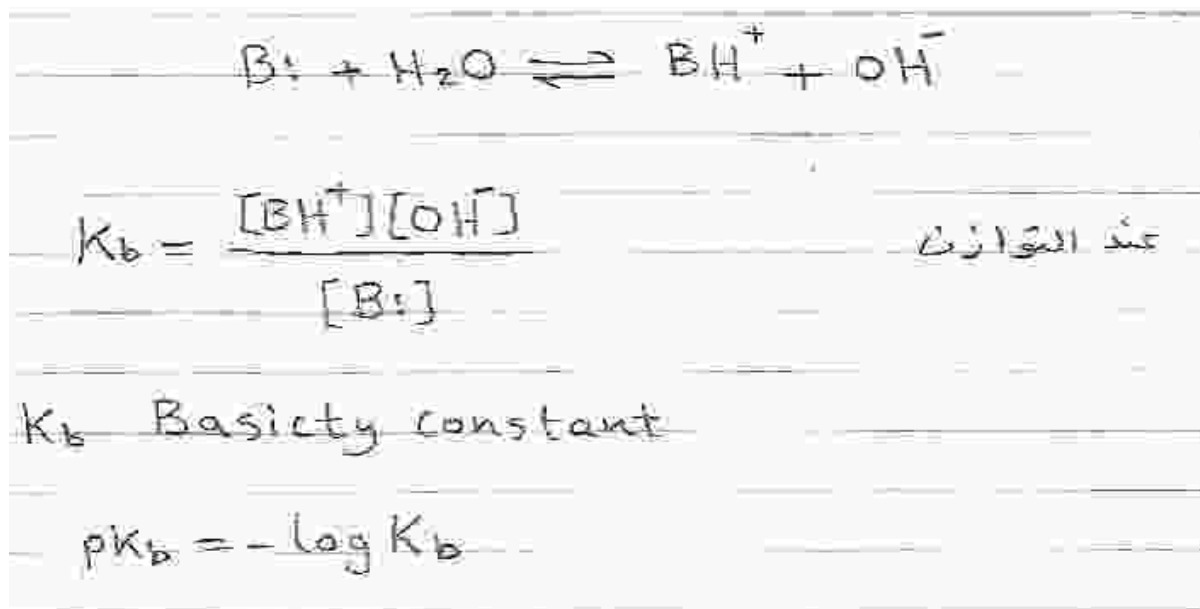 B: + H₂O ⇌ BH⁺ + OH⁻
K_b = [BH⁺][OH⁻] / [B:] عند التوازن
K_b Basicty constant
pK_b = - log K_b